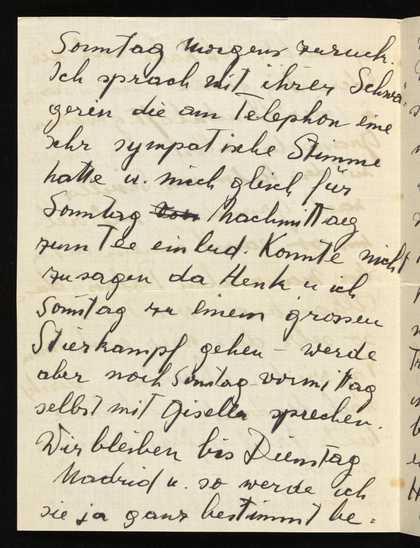 Sonntag morgens zurück.
Ich sprach mit ihrer Schwä-
gerin die am Telephon eine
sehr sympatische Stimme
hatte u. mich gleich für
Sonntag Nachmittag
zum Tee einlud. Konnte nicht
zusagen da Henk u ich
Sonntag zu einem grossen
Stierkampf gehen – werde
aber noch Sonntag vormittag
selbst mit Gisella sprechen.
Wir bleiben bis Dienstag
Madrid u. so werde ich
sie ja ganz bestimmt be-